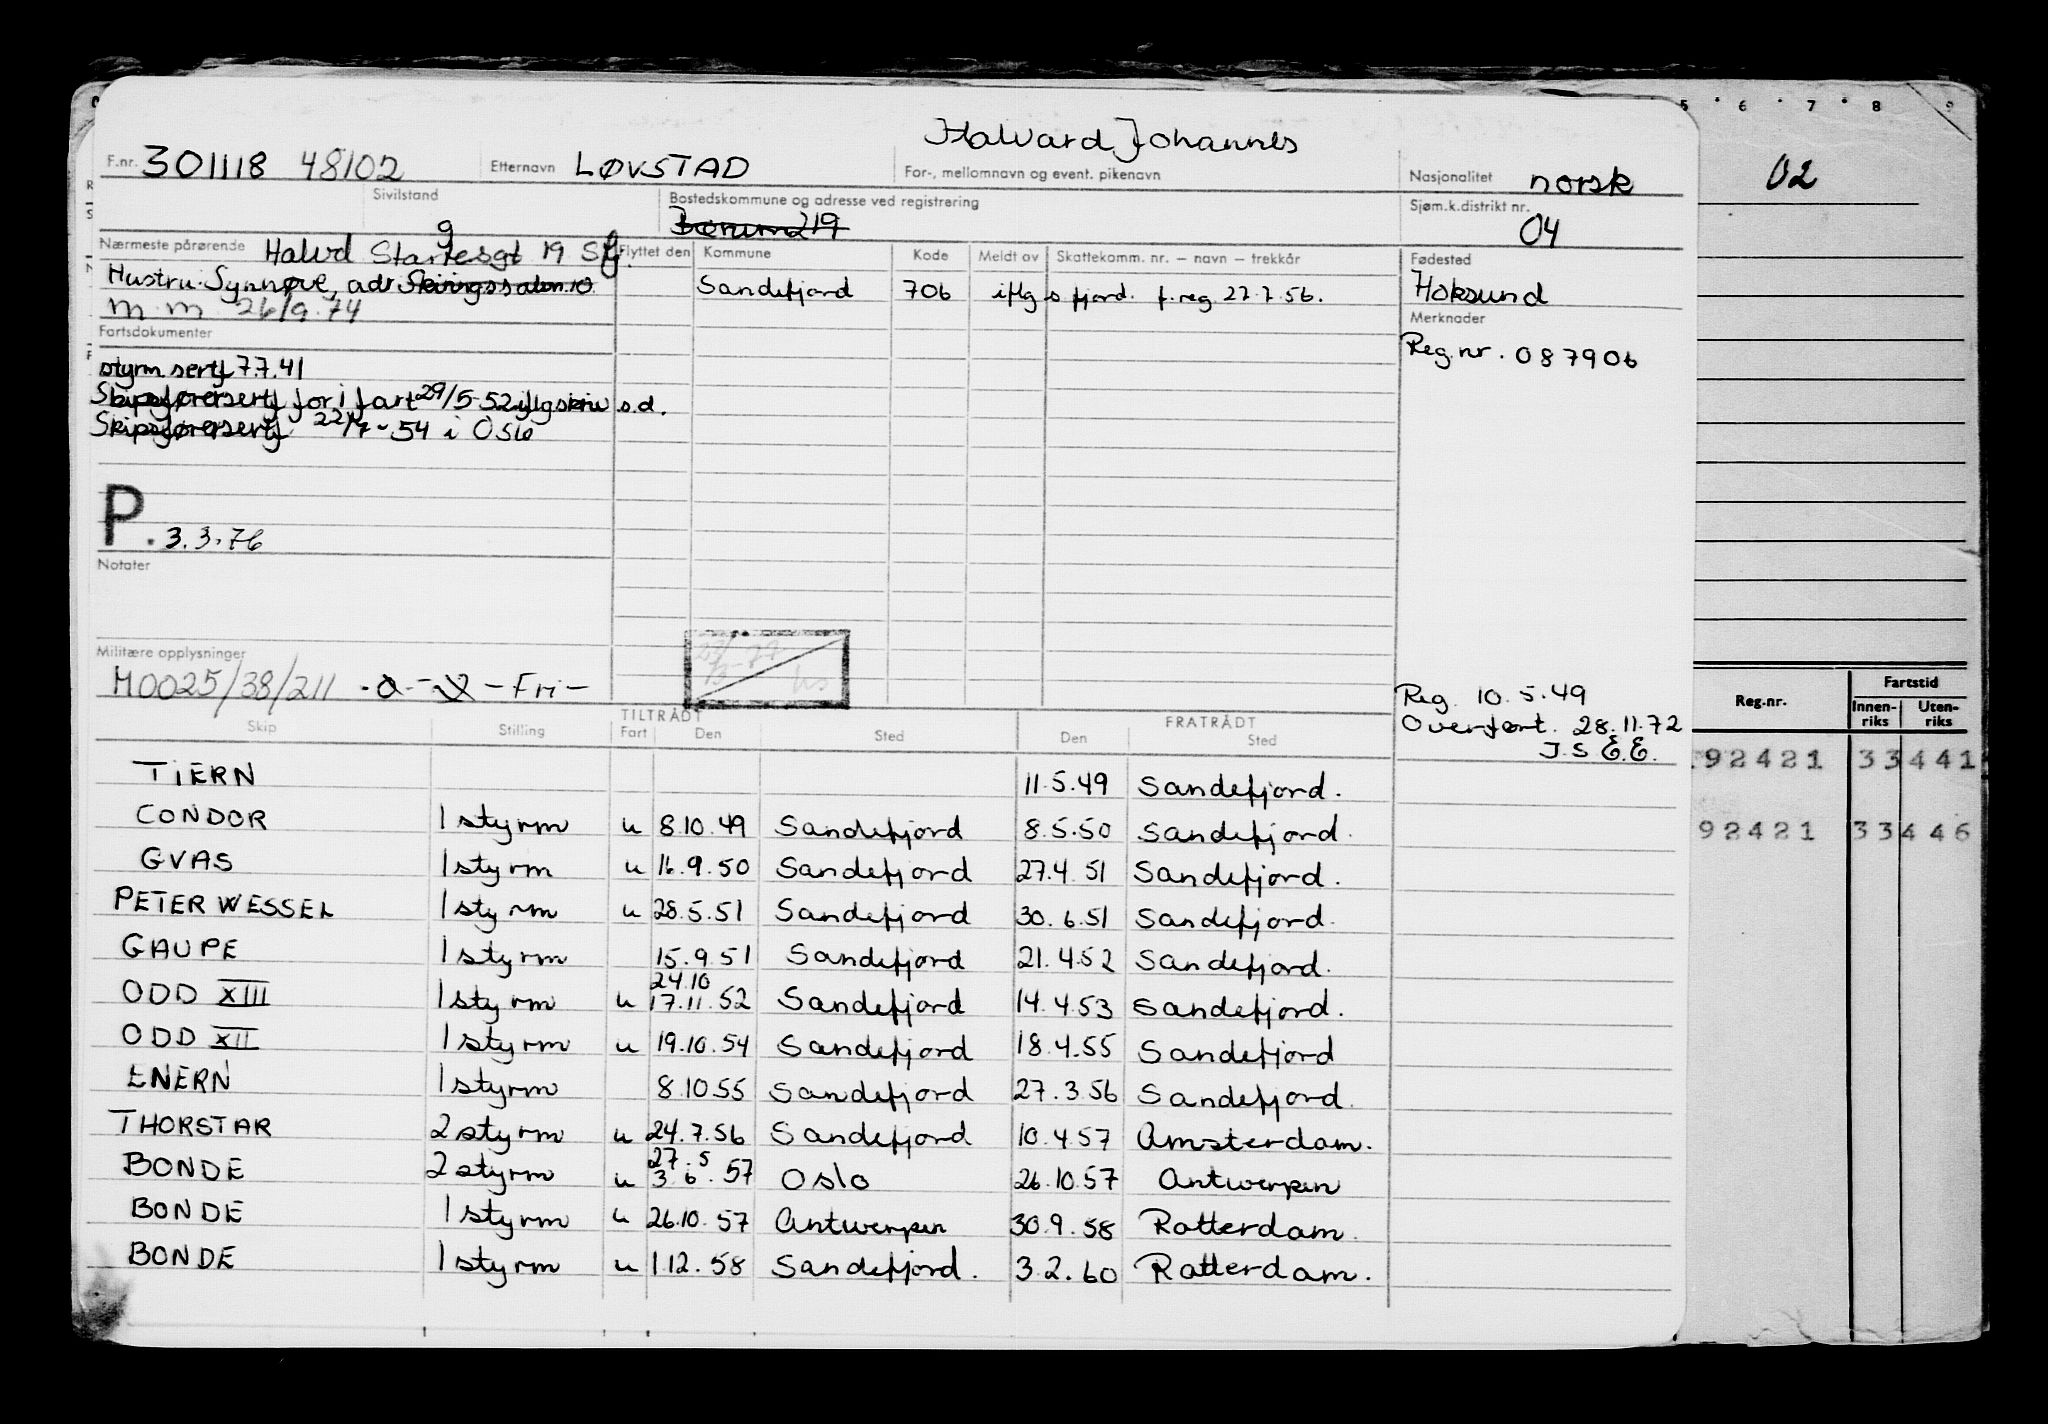 5 6 7 8 9
Halvard Johannes
F.nr. 301118 48102 Etternavn LØVSTAD For-, mellomnavn og event. pikenavn Nasjonalitet norsk 02
Sivilstand g Bostedskommune og adresse ved registrering Bærum 219 Sjøm.k.distrikt nr. 04
Nærmeste pårørende Halvd Svartesgt 19 Sfj. Flyttet den Kommune Kode Meldt av Skattekomm. nr. – navn – trekkår Fødested
Hustru: Synnøve, adr Skiringssalen. 10 Sandefjord 706 iflg s fjord. f.reg 27.7.56. Hoksund
m m 26/9.74 Merknader
Fartsdokumenter Reg.nr. 087906
styrm sertf 7.7.41
Skipsførersertf for i fart 29/5-52 iflg skriv s.d.
Skipsførersertf 22/7-54 i Oslo
P. 3.3.76
Notater
Militære opplysninger
H0025/38/211 -a-V-Fri-
Reg. 10.5.49
Overført. 28.11.72
J.S E.E.
Reg.nr. Fartstid
Innen-riks Uten-riks
TILTRÅDT FRATRÅDT
Skip Stilling Fart Den Sted Den Sted
TIERN 11.5.49 Sandefjord. 92421 33441
CONDOR 1 styrm u 8.10.49 Sandefjord 8.5.50 Sandefjord. 92421 33446
GVAS 1 styrm u 16.9.50 Sandefjord 27.4.51 Sandefjord.
PETER WESSEL 1 styrm u 28.5.51 Sandefjord 30.6.51 Sandefjord.
GAUPE 1 styrm 15.9.51 Sandefjord 21.4.52 Sandefjord.
24.10
ODD XIII 1 styrm u 17.11.52 Sandefjord 14.4.53 Sandefjord.
ODD XII 1 styrm u 19.10.54 Sandefjord 18.4.55 Sandefjord
ENERN 1 styrm 8.10.55 Sandefjord 27.3.56 Sandefjord.
THORSTAR 2 styrm u 24.7.56 Sandefjord 10.4.57 Amsterdam.
27.5
BONDE 2 styrm u 3.6.57 Oslo 26.10.57 Antwerpen
BONDE 1 styrm u 26.10.57 Antwerpen 30.9.58 Rotterdam.
BONDE 1 styrm u 1.12.58 Sandefjord. 3.2.60 Rotterdam.